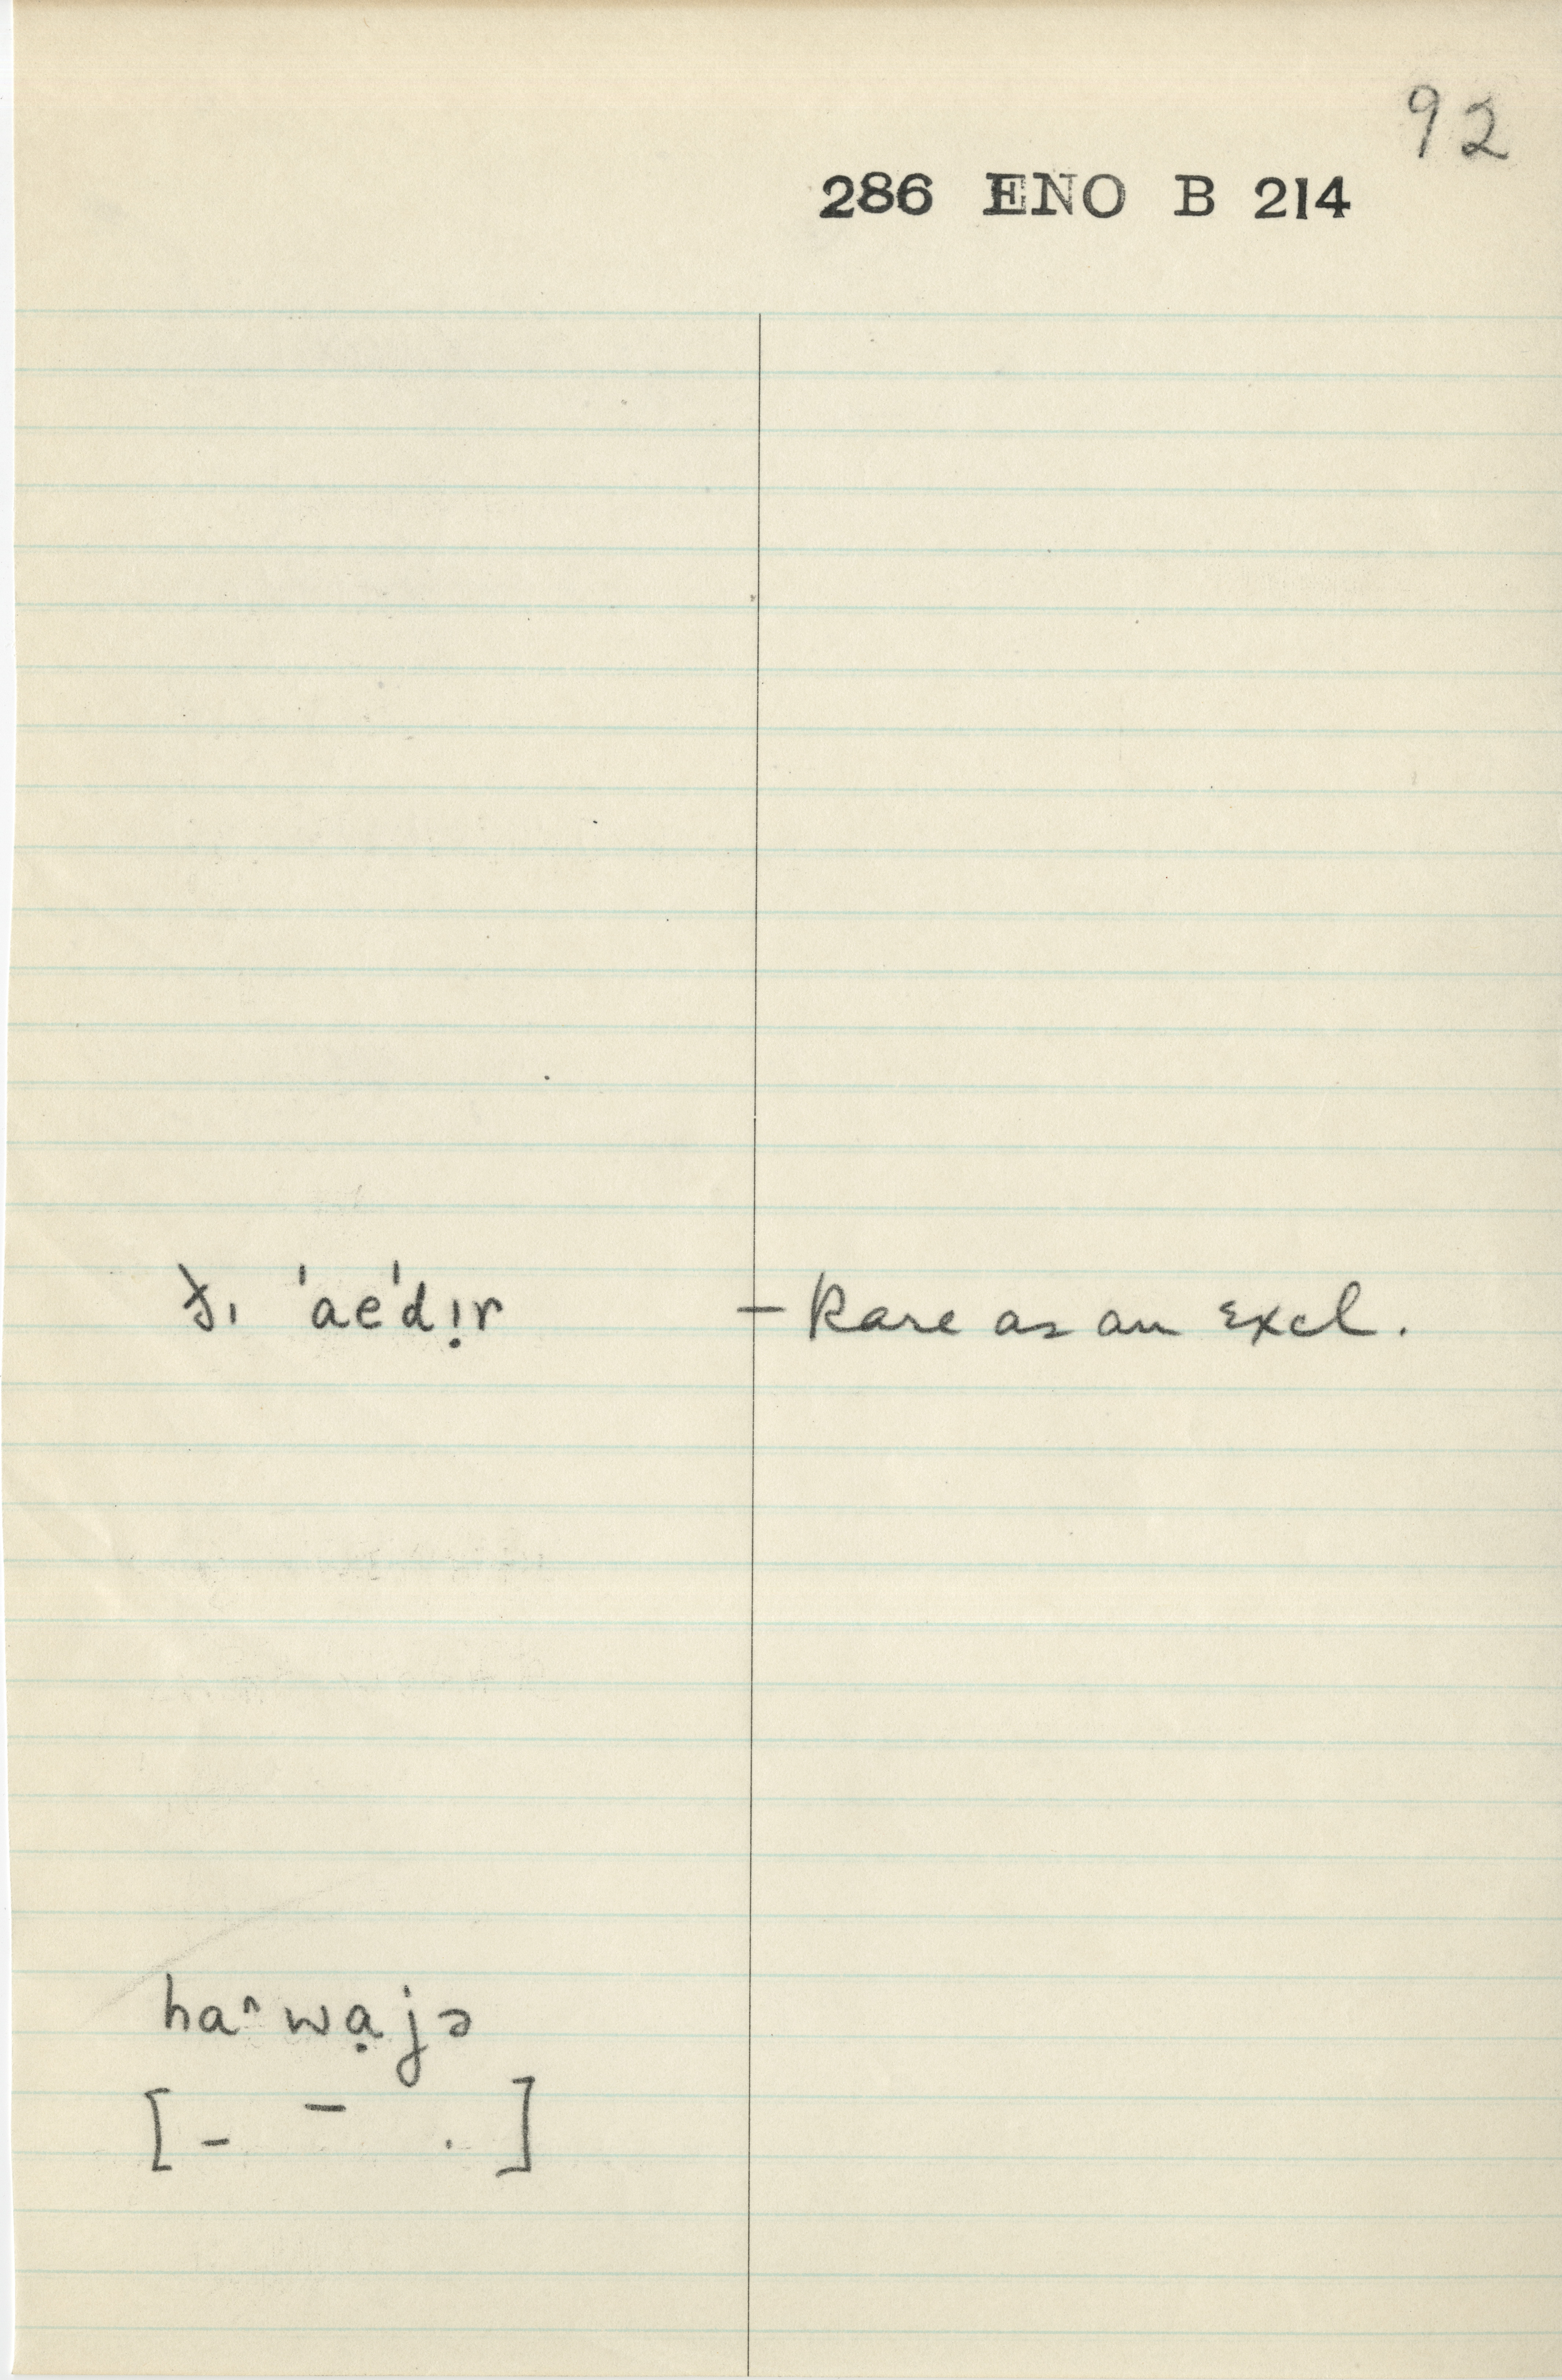 92
286 ENO B 214
ɟɪ ˈaeˈdɪ̣r — Rare as an excl.
haˆwạjə
[ – ¯ . ]